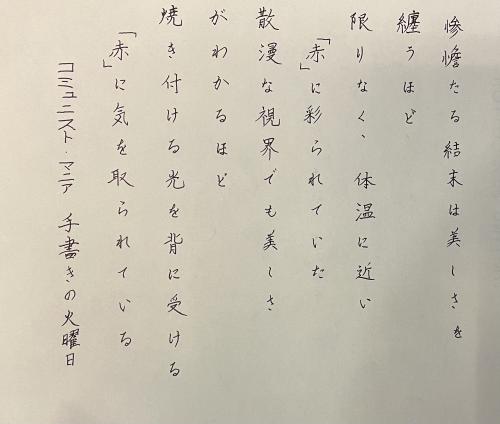 惨憺たる結末は美しさを
纏うほど
限りなく、体温に近い
「赤」に彩られていた
散漫な視界でも美しさ
がわかるほど
焼き付ける光を背に受ける
「赤」に気を取られている
コミュニスト・マニア 手書きの火曜日